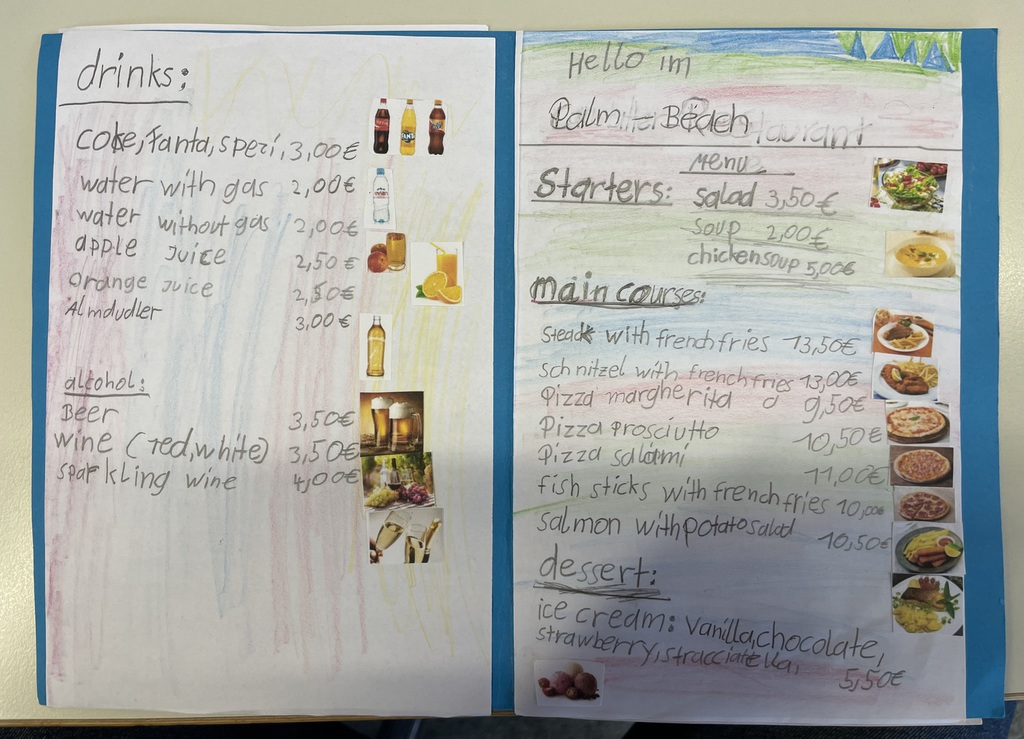 drinks:
coke, Fanta, speri, 3,00€
water with gas 2,00€
water without gas 2,00€
apple Juice 2,50€
orange Juice 2,50€
Almdudler 3,00€
alcohol:
Beer 3,50€
wine (red, white) 3,50€
sparkling wine 4,00€
Hello im
Palm - Beach
Menu
Starters: salad 3,50€
soup 2,00€
chickensoup 5,00€
main courses:
steak with french fries 13,50€
schnitzel with french fries 13,00€
Pizza margherita 9,50€
Pizza Prosciutto 10,50€
Pizza salami 11,00€
fish sticks with french fries 10,00€
salmon with potato salad 10,50€
dessert:
ice cream: Vanilla, chocolate,
strawberry, stracciatella,
5,50€